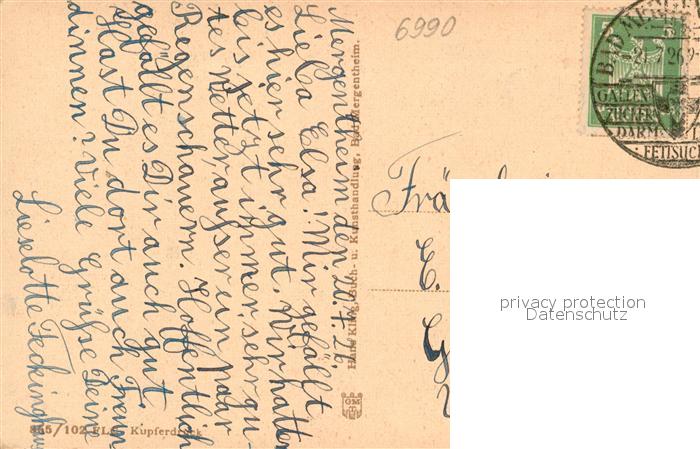 Mergentheim den 20.7.26.
Liebe Elsa! Mir gefällt
es hier sehr gut. Wir hatten
bis jetzt immer sehr gu-
tes Wetter außer ein paar
Regenschauern. Hoffentlich
gefällt es Dir auch gut.
Hast Du dort auch Freun-
dinnen? Viele Grüße Deine
Lieselotte
Hans Kling, Buch- u. Kunsthandlung, Bad Mergentheim.
855/102 Kupferdruck
6990
5
BAD MERGEN
GALLEN
ZUCKER
DARM
FETTSUCH
E.
G
privacy protection
Datenschutz